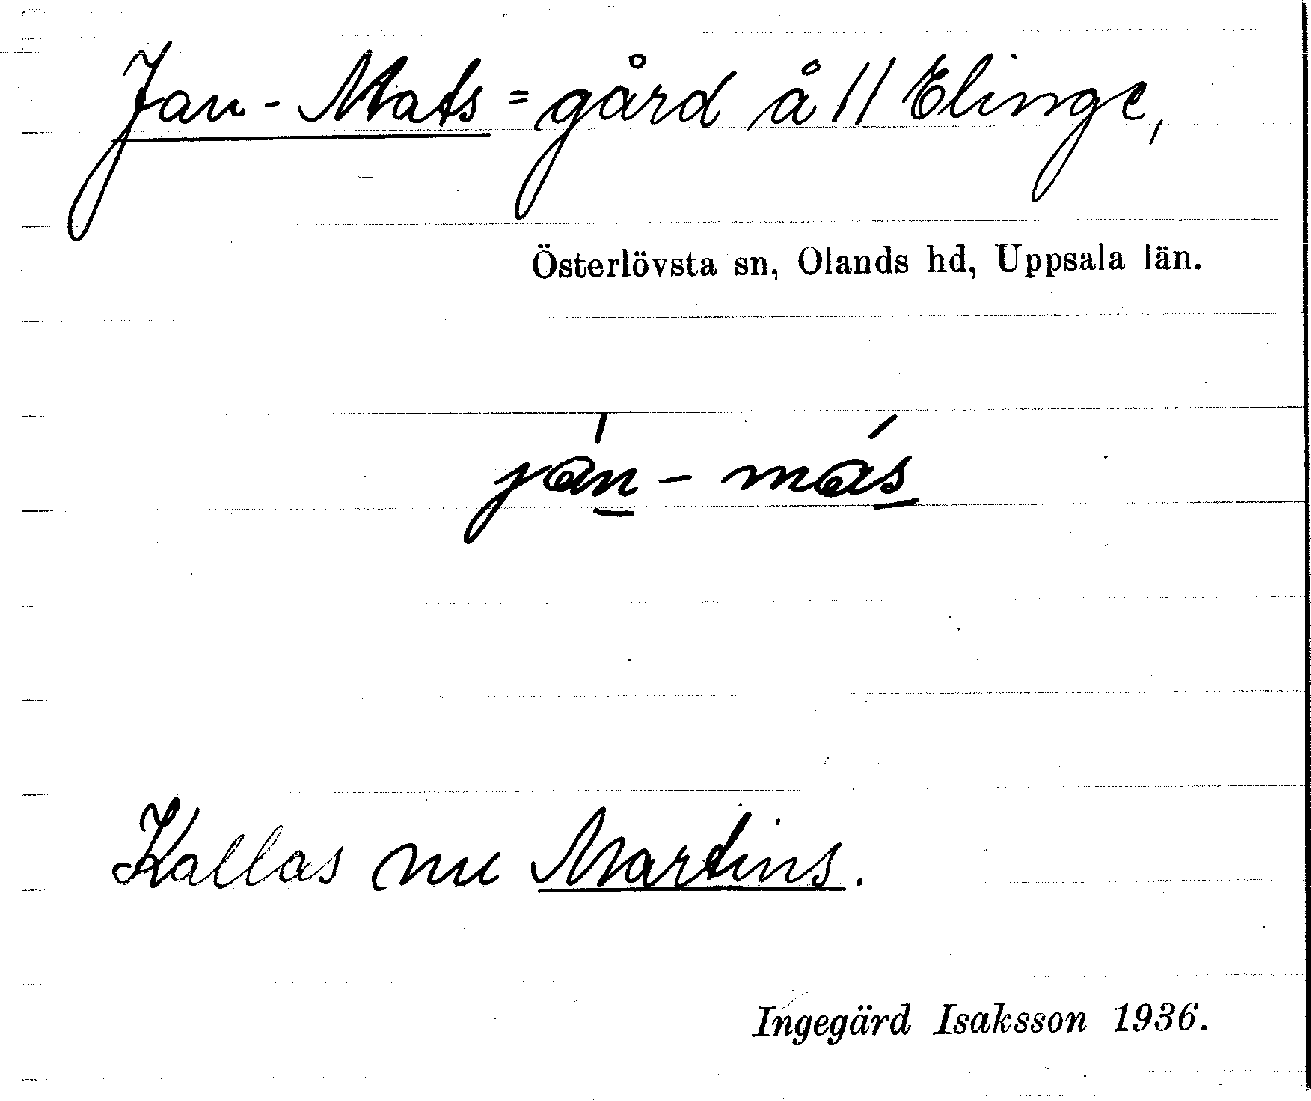 Jan-Mats = gård å 11 Elinge,
Österlövsta sn, Olands hd, Uppsala län.
ján - más
Kallas nu Martins.
Ingegärd Isaksson 1936.